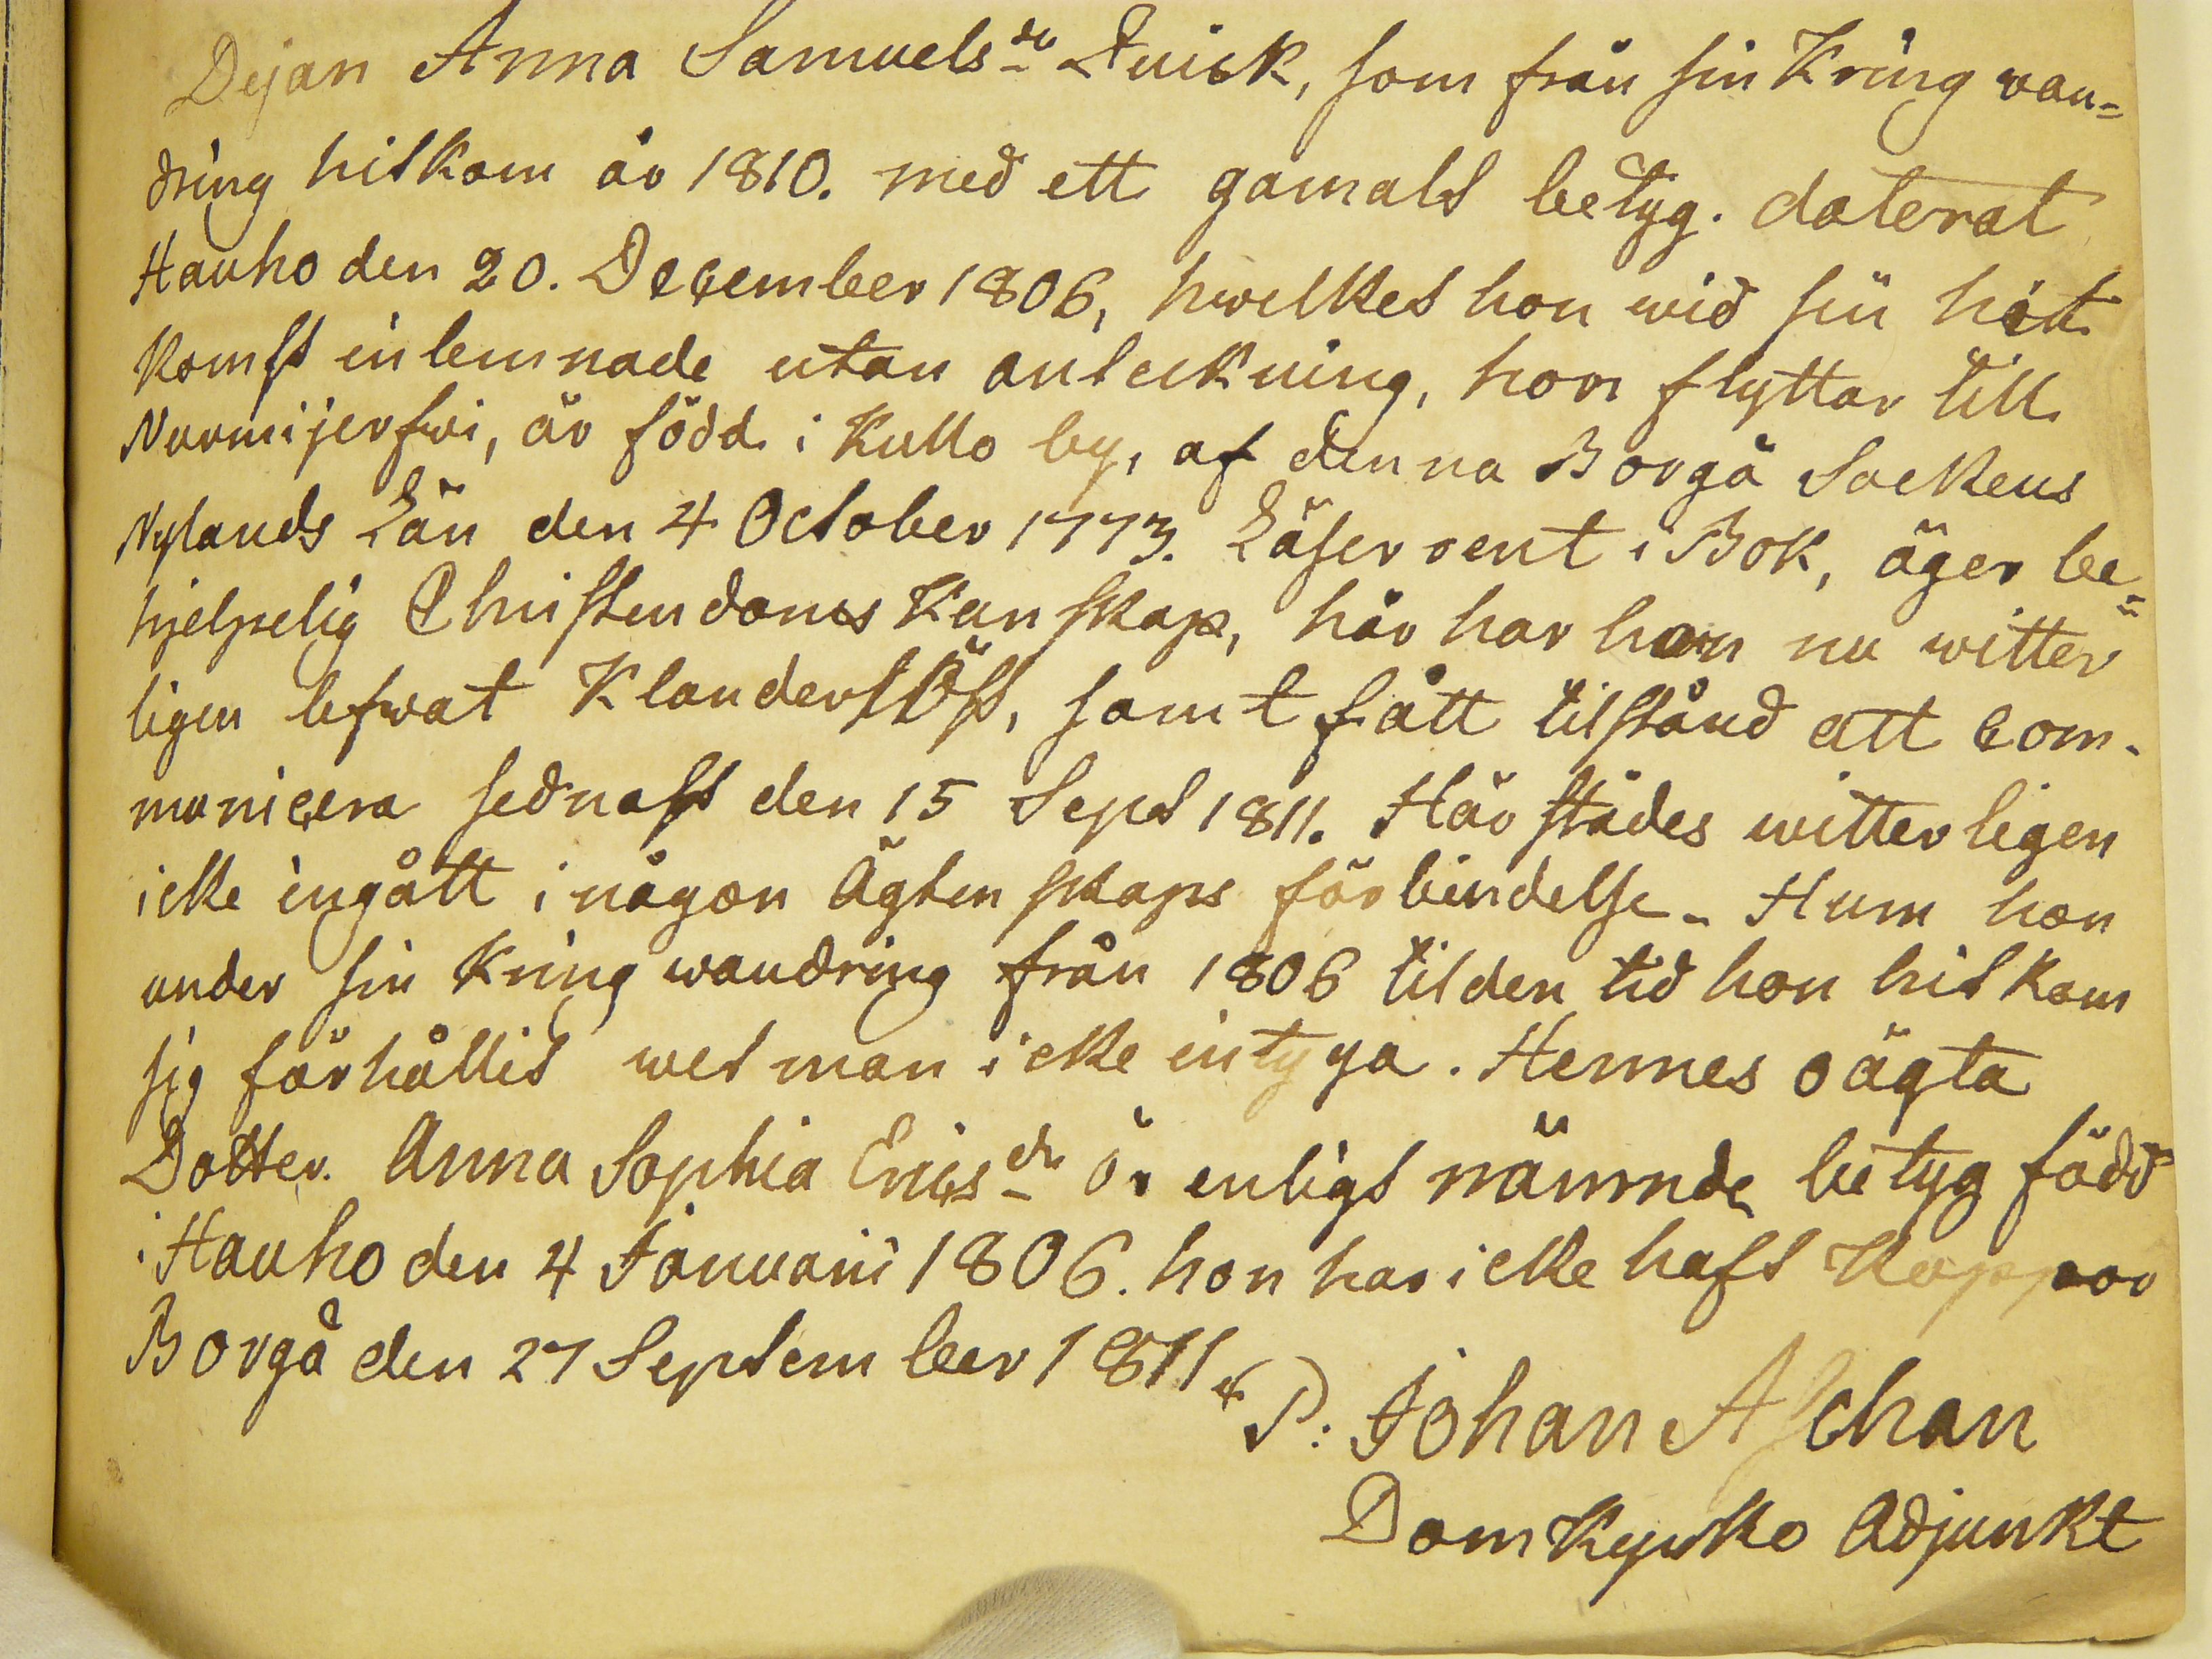 Dejan Anna Samuels dr Quick, som från sin Kring wan=
dring hitkom år 1810. med ett gamalt betyg. daterat
Hauho den 20. December 1806, hwilket hon wid sin hit
komst inlemnade utan anteckning, hon flyttar till
Nurmijerfwi, är född i Kullo by, af denna Borgå Sockens
Nylands Län den 4 October 1773. Läser rent i Bok, äger be=
hjelpelig Christendoms Kunskap, här har hon nu witter
ligen lefwat Klanderlöst, samt fått tilstånd att com-
municera sednast den 15 Sept 1811. Här städes witterligen
icke ingått i någon Ägtenskaps förbindelse - Hum hon
under sin Kringwandring från 1806 til den tid hon hitkom
sig förhållit wet man icke intyga. Hennes oägta
Dotter. Anna Sophia Erics dr är enligt nämnde betyg född
i Hauho den 4 Januarii 1806. hon har icke haft Koppor
Borgå den 27 September 1811
Johan Aschan
Domkyrko Adjunkt